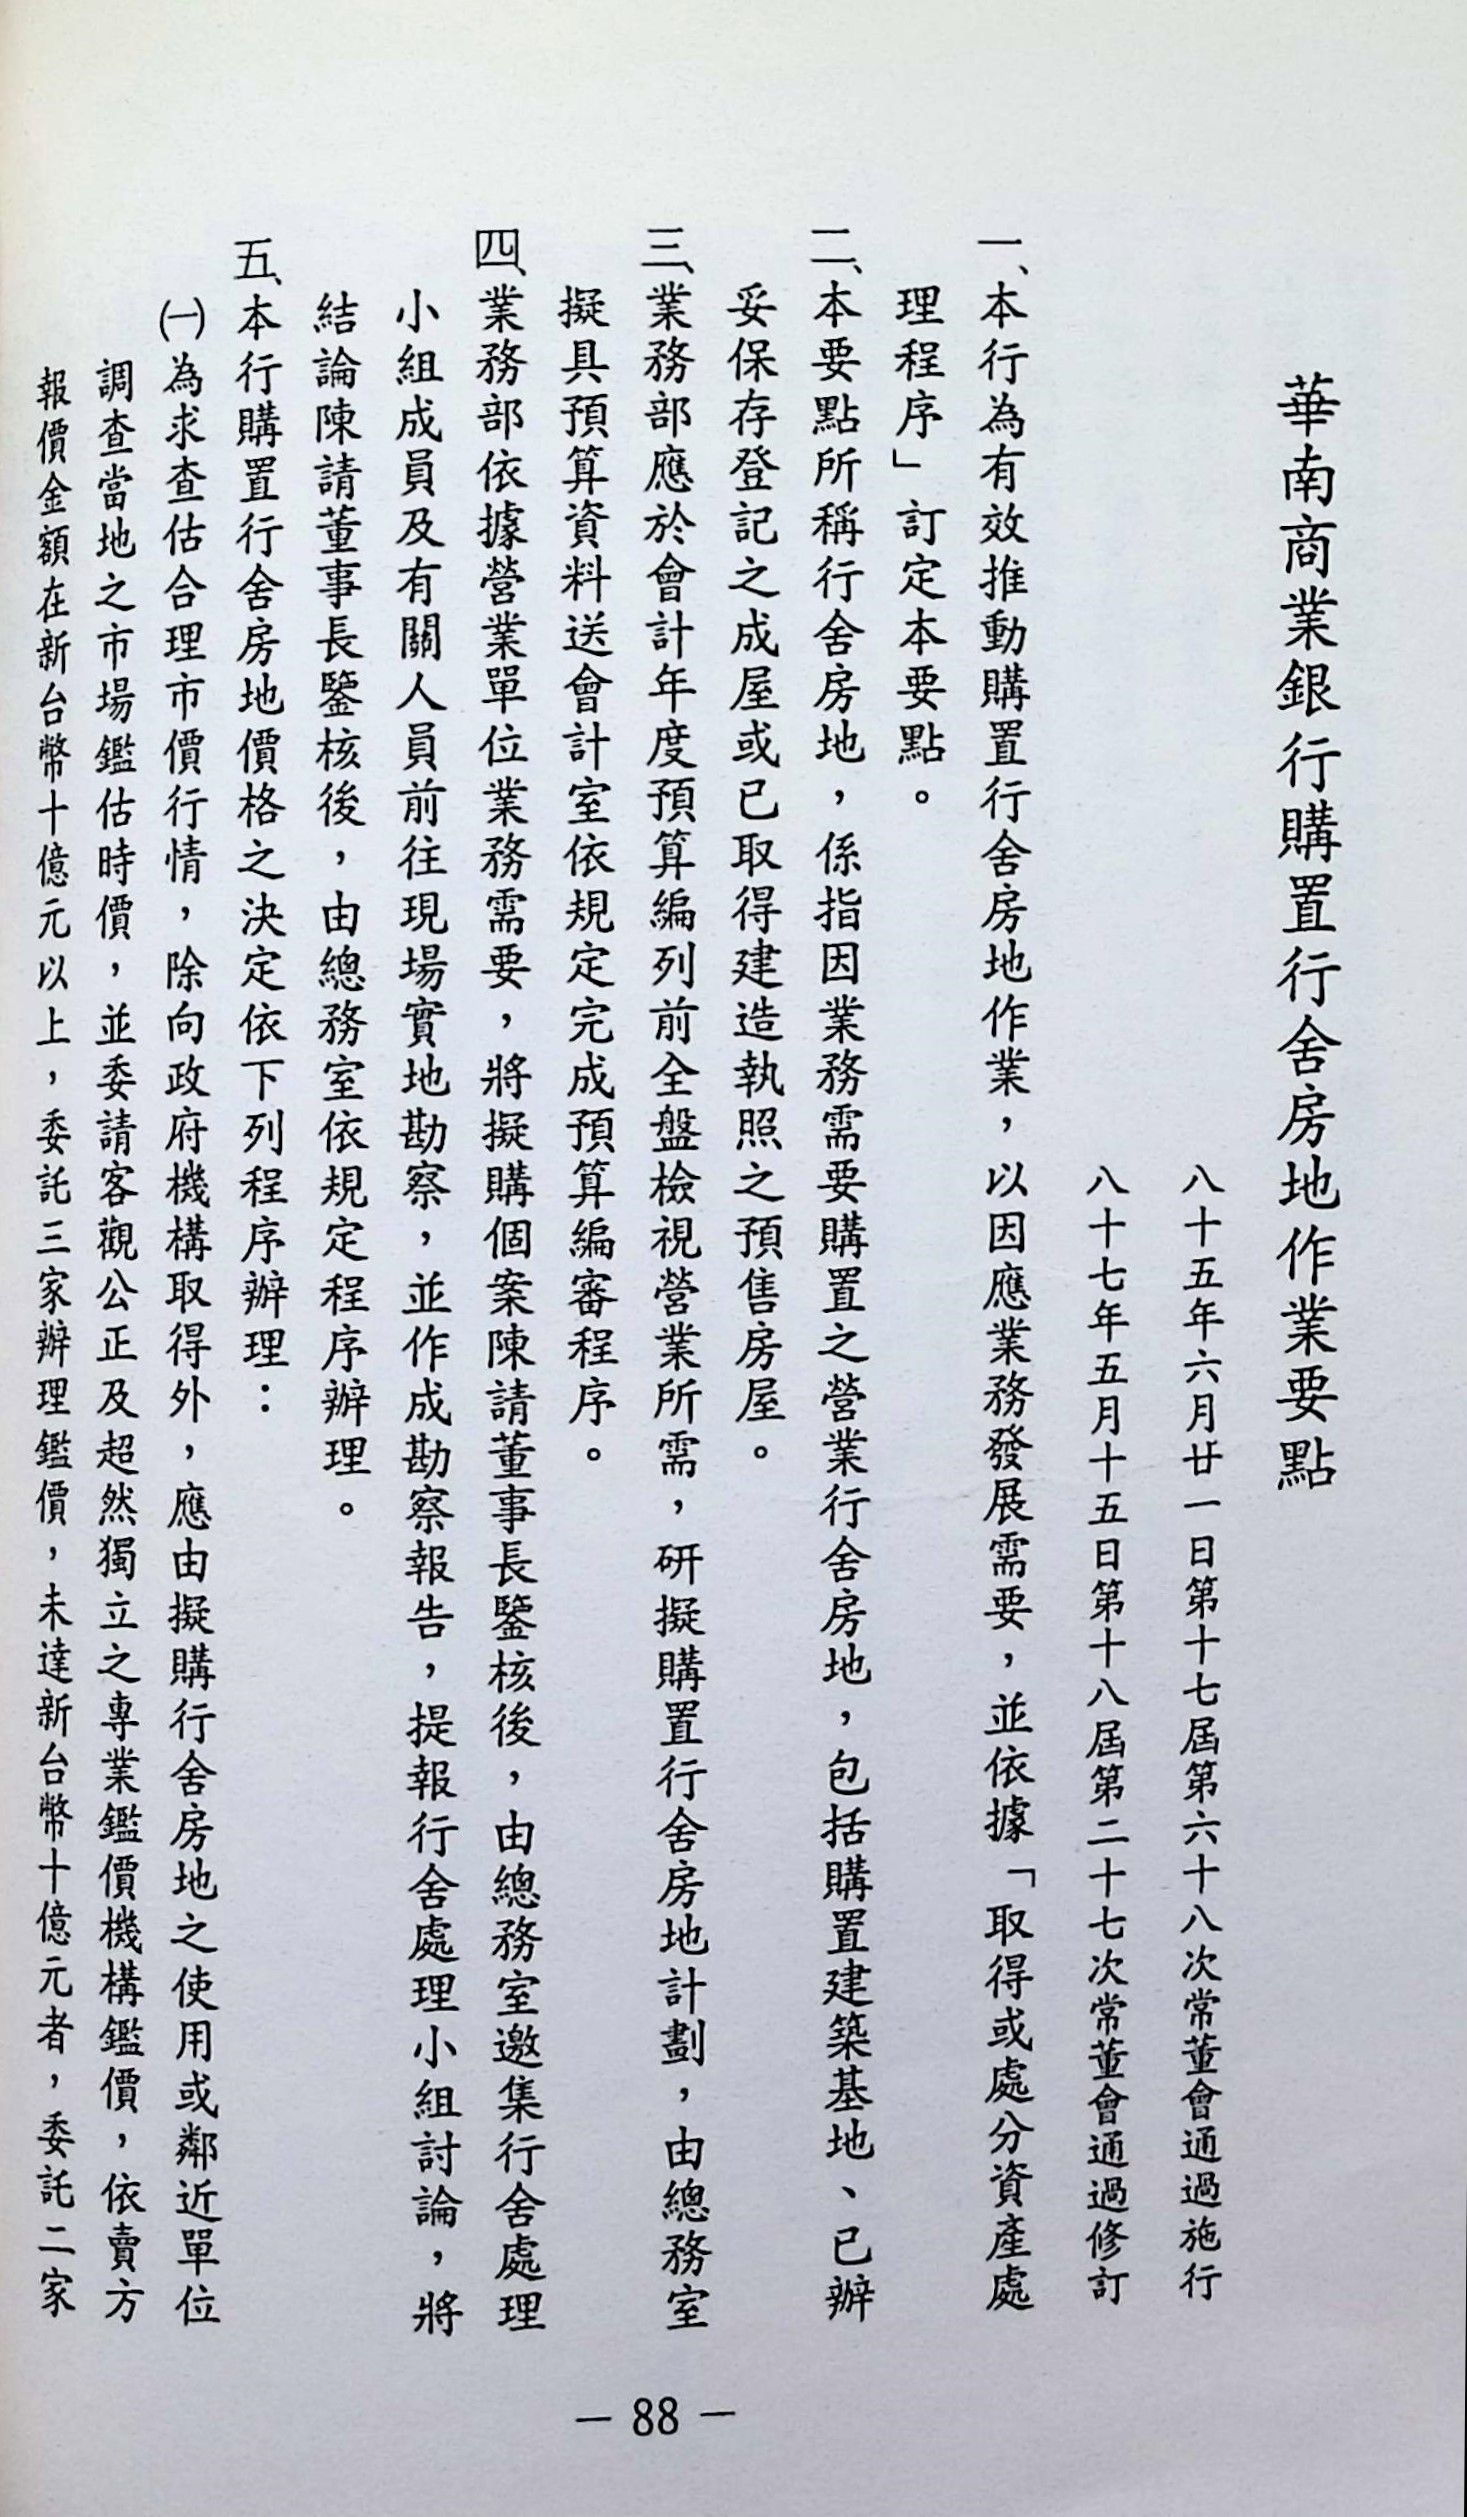 華南商業銀行購置行舍房地作業要點
八十五年六月廿一日第十七屆第六十八次常董會通過施行
八十七年五月十五日第十八屆第二十七次常董會通過修訂
一、本行為有效推動購置行舍房地作業，以因應業務發展需要，並依據「取得或處分資產處
理程序」訂定本要點。
二、本要點所稱行舍房地，係指因業務需要購置之營業行舍房地，包括購置建築基地、已辦
妥保存登記之成屋或已取得建造執照之預售房屋。
三、業務部應於會計年度預算編列前全盤檢視營業所需，研擬購置行舍房地計劃，由總務室
擬具預算資料送會計室依規定完成預算編審程序。
四、業務部依據營業單位業務需要，將擬購個案陳請董事長鑒核後，由總務室邀集行舍處理
小組成員及有關人員前往現場實地勘察，並作成勘察報告，提報行舍處理小組討論，將
結論陳請董事長鑒核後，由總務室依規定程序辦理。
五、本行購置行舍房地價格之決定依下列程序辦理：
㈠為求查估合理市價行情，除向政府機構取得外，應由擬購行舍房地之使用或鄰近單位
調查當地之市場鑑估時價，並委請客觀公正及超然獨立之專業鑑價機構鑑價，依賣方
報價金額在新台幣十億元以上，委託三家辦理鑑價，未達新台幣十億元者，委託二家
— 88 —